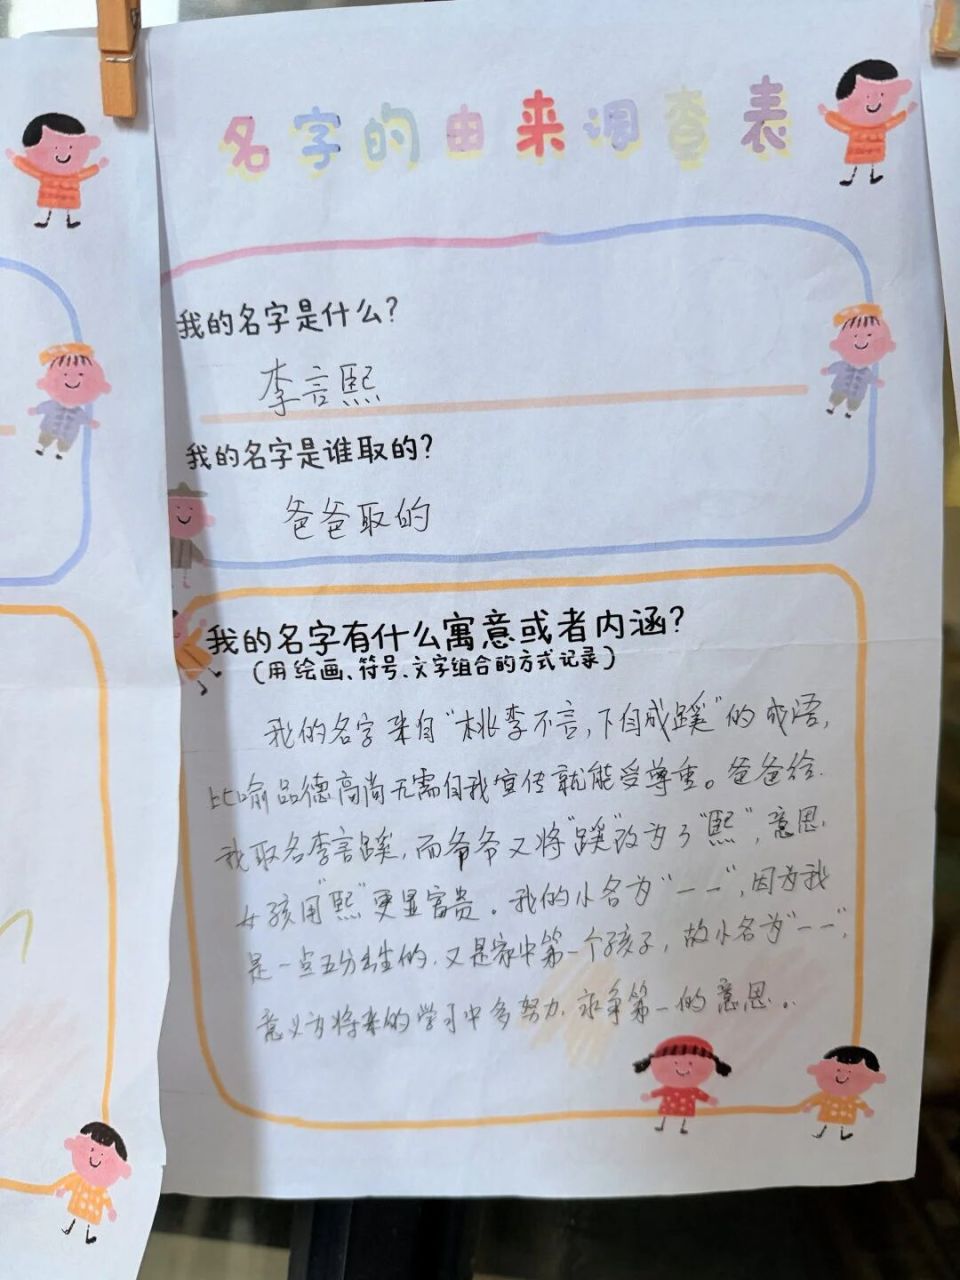 名字的由来调查表
我的名字是什么?
李言熙
我的名字是谁取的?
爸爸取的
我的名字有什么寓意或者内涵?
(用绘画、符号、文字组合的方式记录)
我的名字来自“桃李不言,下自成蹊”的成语,
比喻品德高尚无需自我宣传就能受尊重。爸爸给
我取名李言蹊,而爷爷又将“蹊”改为了“熙”,意思
女孩用“熙”更显富贵。我的小名为“一一”,因为我
是一点五分出生的,又是家中第一个孩子,故小名为“一一”,
意义为将来的学习中多努力,永争第一的意思。